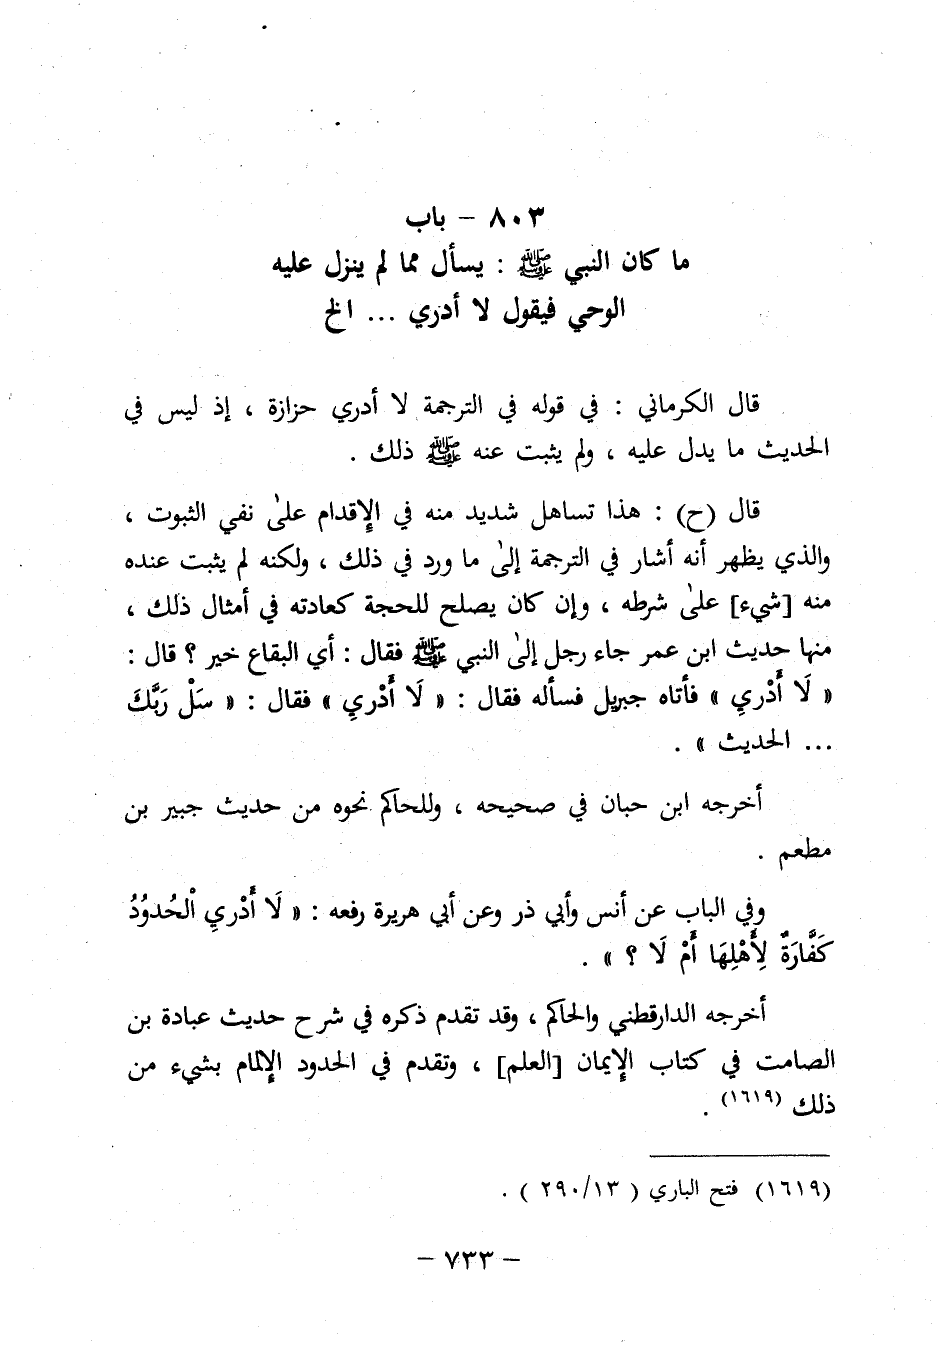 ٨٠٣ - باب
ما كان النبي ﷺ : يسأل مما لم ينزل عليه
الوحي فيقول لا أدري ... الخ
قال الكرماني : في قوله في الترجمة لا أدري حزازة ، إذ ليس في
الحديث ما يدل عليه ، ولم يثبت عنه ﷺ ذلك .
قال (ح) : هذا تساهل شديد منه في الإقدام علىٰ نفي الثبوت ،
والذي يظهر أنه أشار في الترجمة إلىٰ ما ورد في ذلك ، ولكنه لم يثبت عنده
منه [شيء] علىٰ شرطه ، وإن كان يصلح للحجة كعادته في أمثال ذلك ،
منها حديث ابن عمر جاء رجل إلىٰ النبي ﷺ فقال : أي البقاع خير ؟ قال :
« لَا أَدْرِي » فأتاه جبريل فسأله فقال : « لَا أَدْرِي » فقال : « سَلْ رَبَّكَ
... الحديث » .
أخرجه ابن حبان في صحيحه ، وللحاكم نحوه من حديث جبير بن
مطعم .
وفي الباب عن أنس وأبي ذر وعن أبي هريرة رفعه : « لَا أَدْرِي اْلحُدوُدُ
كَفَّارَةٌ لِأَهْلِهَا أَمْ لَا ؟ » .
أخرجه الدارقطني والحاكم ، وقد تقدم ذكره في شرح حديث عبادة بن
الصامت في كتاب الإيمان [العلم] ، وتقدم في الحدود الإلمام بشيء من
ذلك (١٦١٩) .
(١٦١٩) فتح الباري ( ٢٩٠/١٣ ) .
- ٧٣٣ -